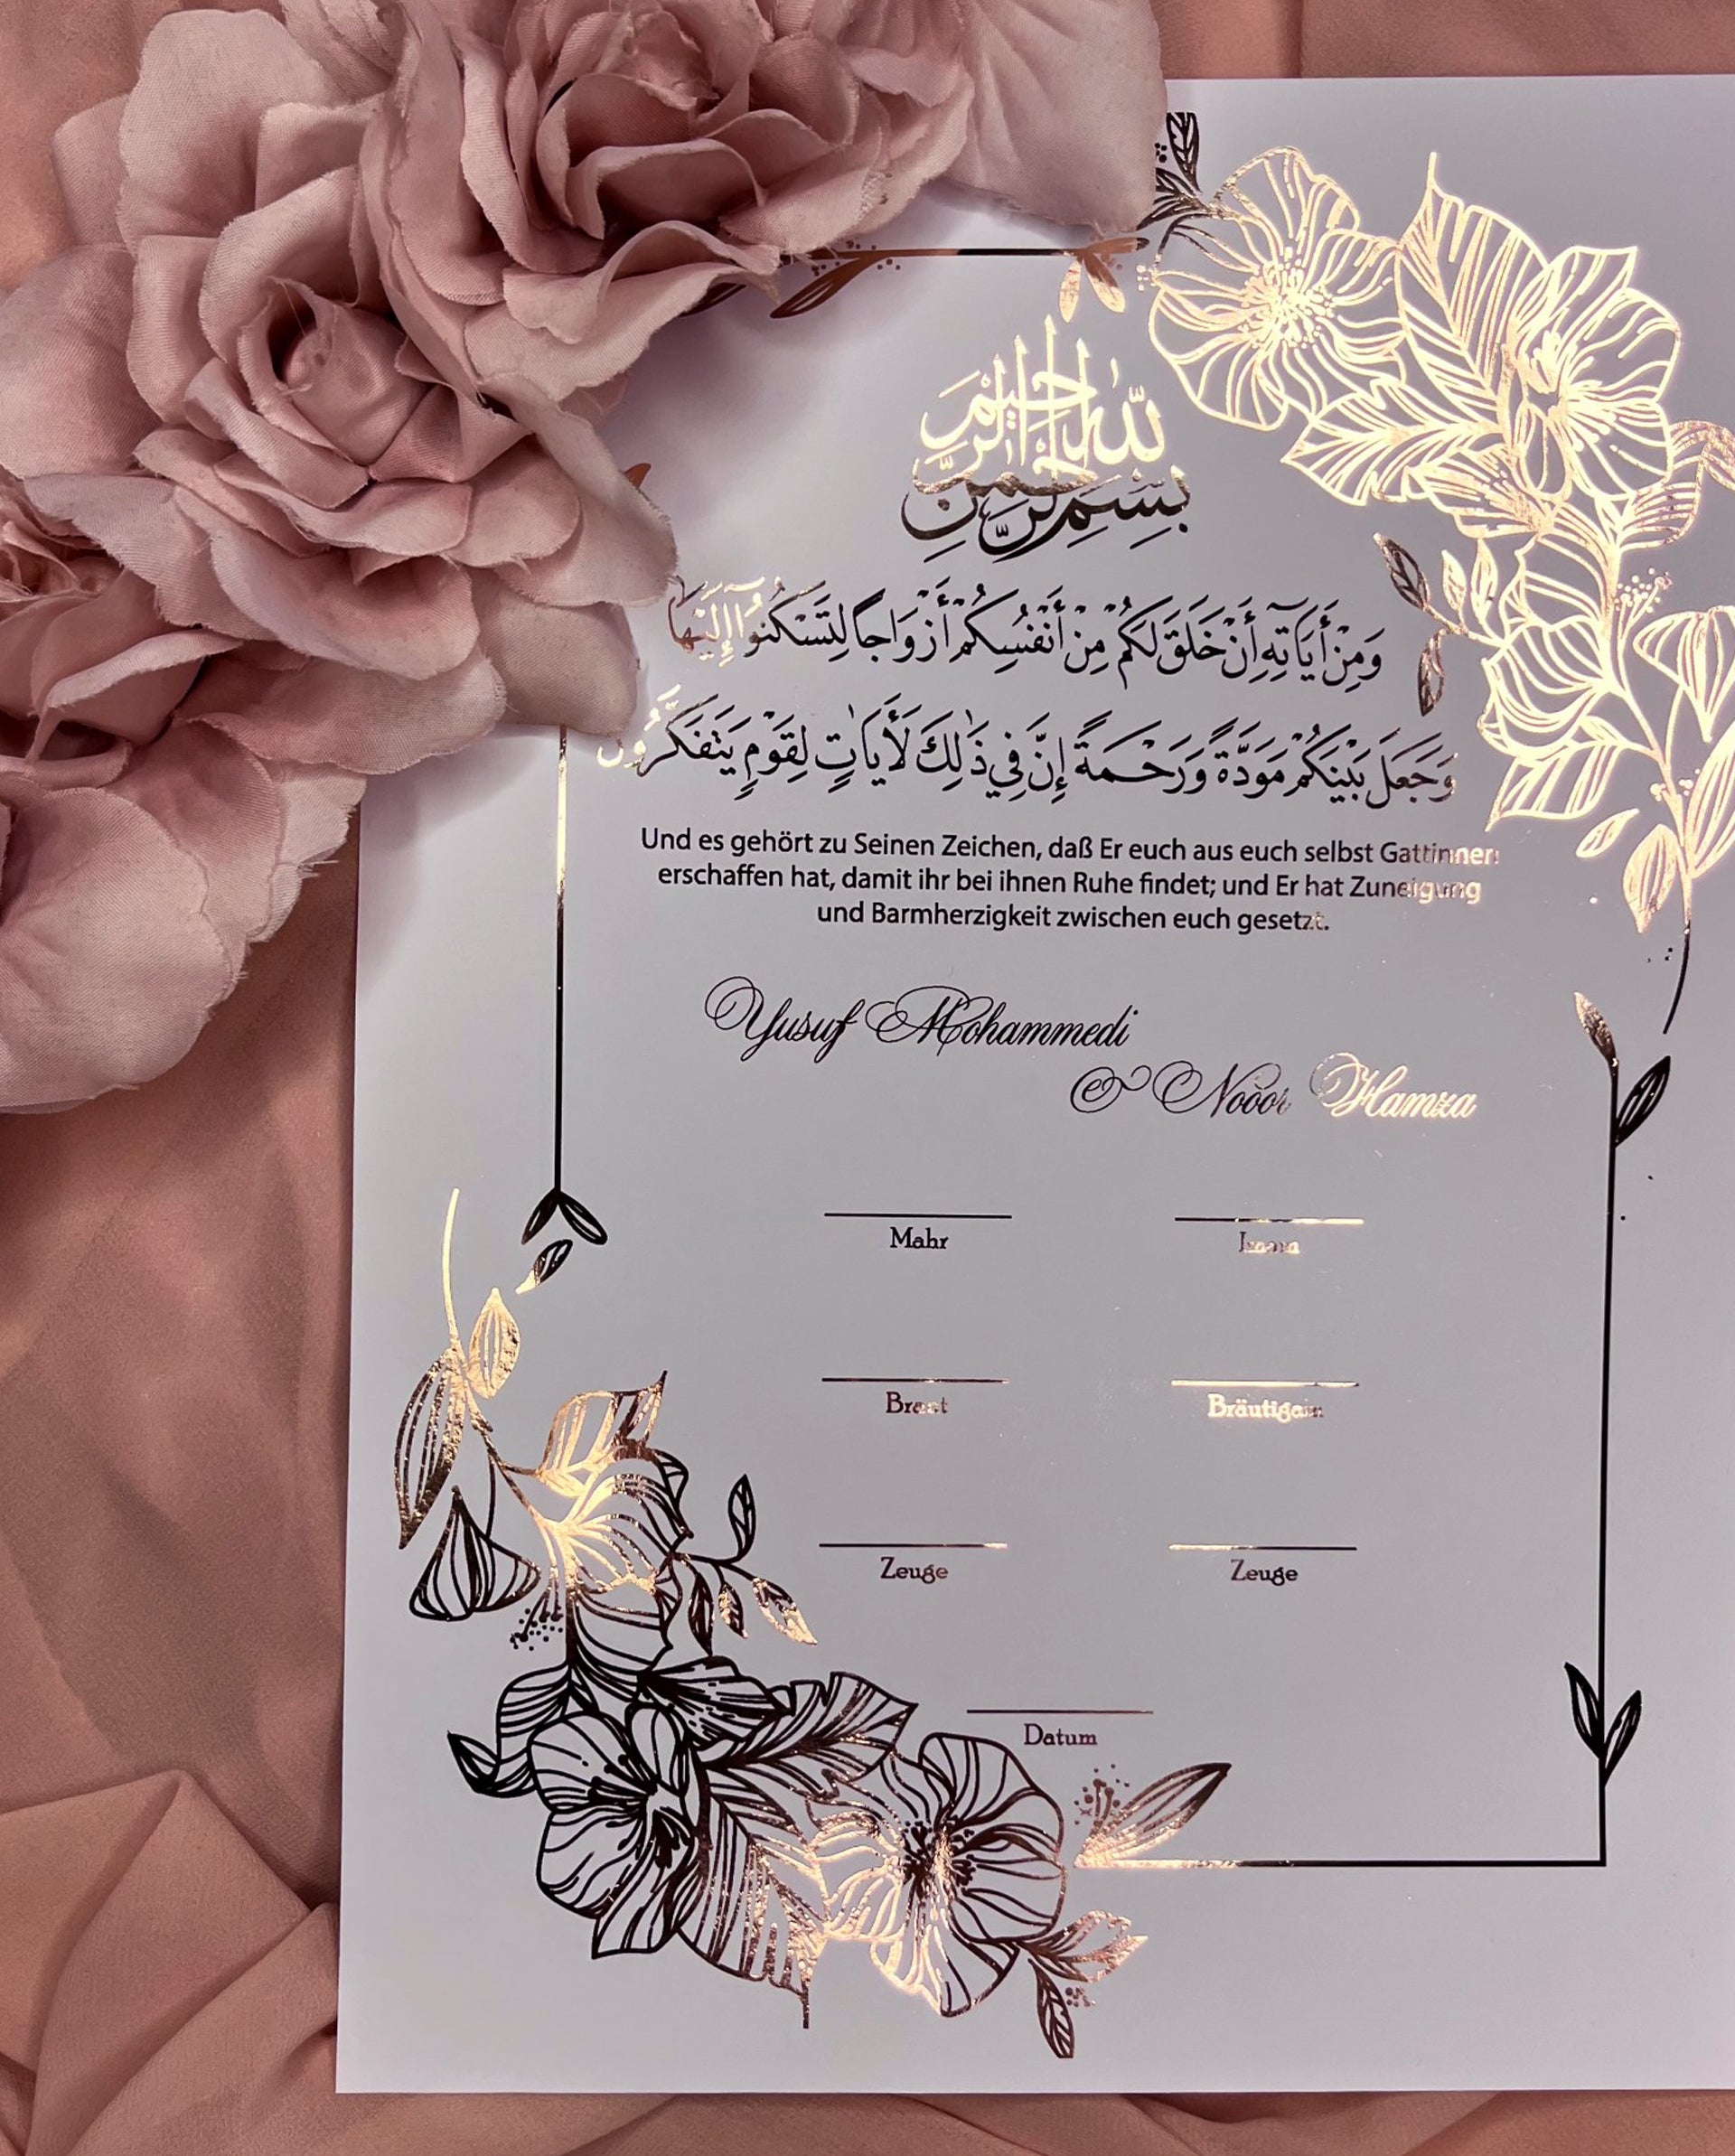 بسم الله الرحمن الرحيم
وَمِنْ أَيَاتِهِ أَنْ خَلَقَ لَكُمْ مِنْ أَنْفُسِكُمْ أَزْوَاجًا لِتَسْكُنُوا إِلَيْهَا
وَجَعَلَ بَيْنَكُمْ مَوَدَّةً وَرَحْمَةً إِنَّ فِي ذَٰلِكَ لَأَيَاتٍ لِقَوْمٍ يَتَفَكَّرُونَ
Und es gehört zu Seinen Zeichen, daß Er euch aus euch selbst Gattinnen
erschaffen hat, damit ihr bei ihnen Ruhe findet; und Er hat Zuneigung
und Barmherzigkeit zwischen euch gesetzt.
Yusuf Mohammedi
& Nooor Hamza
Mahr Imam
Braut Bräutigam
Zeuge Zeuge
Datum